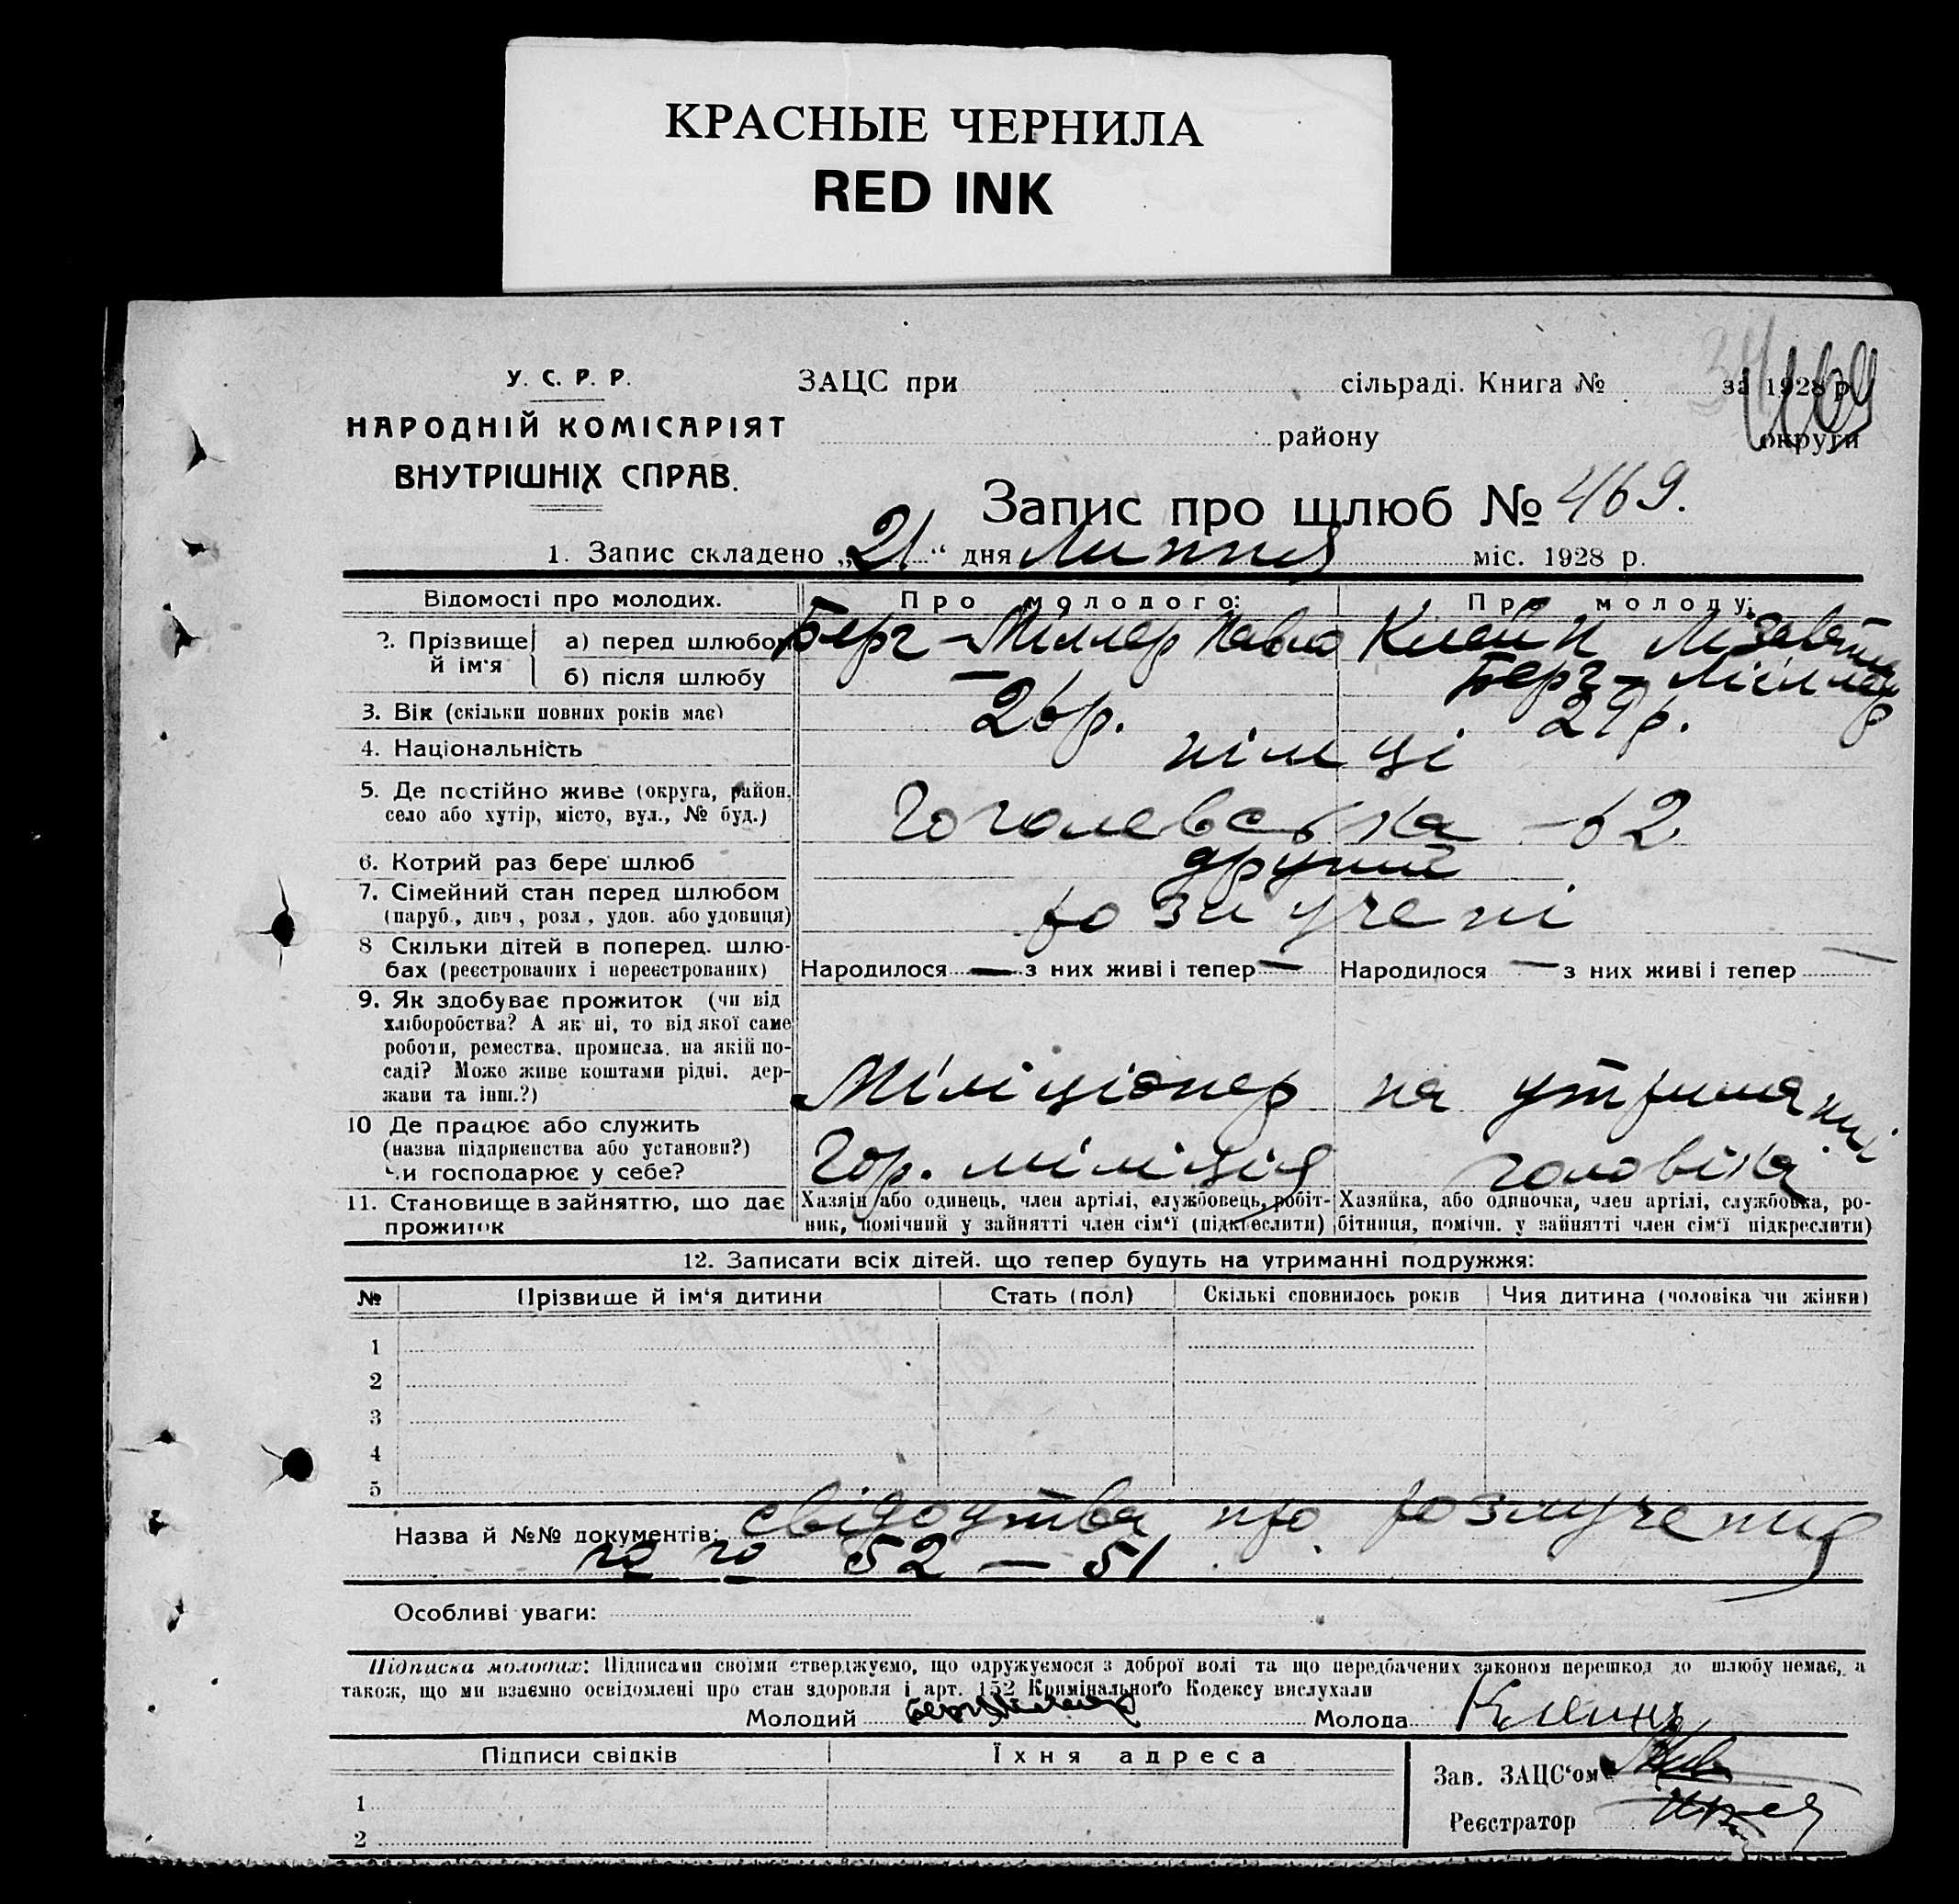 КРАСНЫЕ ЧЕРНИЛА
RED INK
У. С. Р. Р.
НАРОДНІЙ КОМІСАРІЯТ
ВНУТРІШНІХ СПРАВ.
ЗАЦС при сільраді. Книга № за 1928 р.
району округи
469
Запис про шлюб № 469.
1. Запис складено „21“ дня Липня міс. 1928 р.
Відомості про молодих. Про молодого: Про молоду:
2. Прізвище й ім‘я а) перед шлюбом Берг-Міллер Павло Клейн Лізавета
б) після шлюбу — Берг-Міллер
3. Вік (скільки повних років має) 26 р. 29 р.
4. Національність німці
5. Де постійно живе (округа, район, село або хутір, місто, вул., № буд.) Гоголевська - 62
6. Котрий раз бере шлюб другий
7. Сімейний стан перед шлюбом (паруб., дівч., розл., удов. або удовиця) розлучені
8 Скільки дітей в поперед. шлю-
бах (реєстрованих і нереєстрованих) Народилося — з них живі і тепер — Народилося — з них живі і тепер —
9. Як здобуває прожиток (чи від
хліборобства? А як ні, то від якої саме
роботи, ремества, промисла, на якій по-
саді? Може живе коштами рідні, дер-
жави та інш.?) Міліціонер на утриманні
10 Де працює або служить
(назва підприєнства або установи?)
Чи господарює у себе? Гор. міліція чоловіка
11. Становище в зайняттю, що дає прожиток
Хазяїн або одинець, член артілі, службовець, робіт-
ник, помічний у зайнятті член сім‘ї (підкреслити)
Хазяйка, або одиночка, член артілі, службовка, ро-
бітниця, помічн. у зайнятті член сім‘ї підкреслити)
12. Записати всіх дітей, що тепер будуть на утриманні подружжя:
№ Прізвище й ім‘я дитини Стать (пол) Скількі сповнилось років Чия дитина (чоловіка чи жінки)
1
2
3
4
5
Назва й №№ документів: свідоцтва про розлучення
52 — 51
Особливі уваги:
Підписка молодих: Підписами своїми стверджуємо, що одружуємося з доброї волі та що передбачених законом перешкод до шлюбу немає, а
також, що ми взаємно освідомлені про стан здоровля і арт. 152 Кримінального Кодексу вислухали
Молодий БергМіллер Молода Клейн
Підписи свідків Їхня адреса
Зав. ЗАЦС‘ом
1
Реєстратор
2